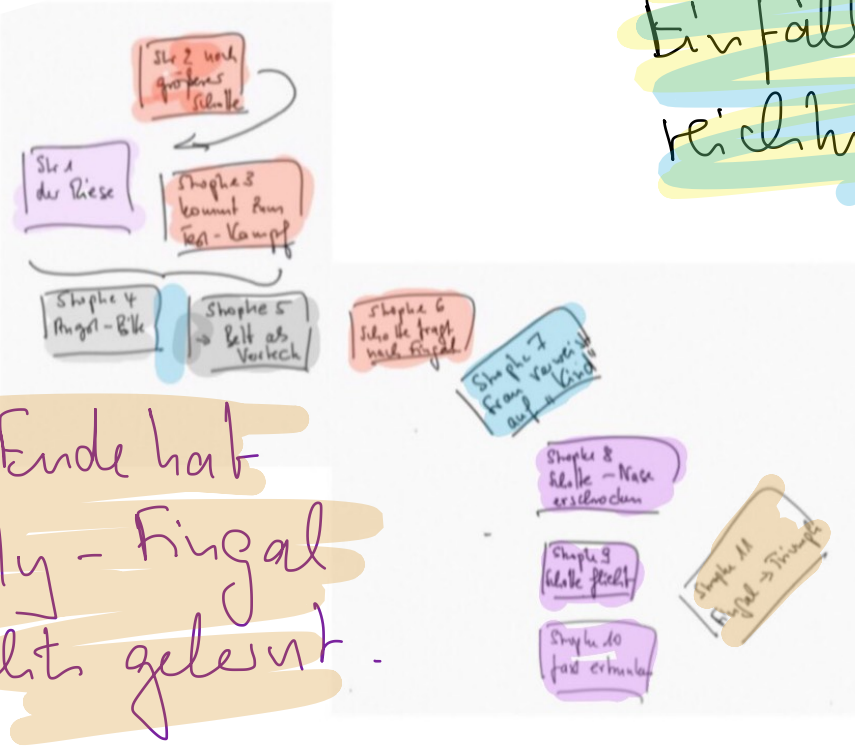 Einfäll
reichh
Str 2 noch
größeres
Schotte
Str 1
der Riese
Strophe 3
kommt zum
Test-Kampf
Strophe 4
Angst-Bitte
Strophe 5
→ Bett als
Versteck
Strophe 6
Schotte fragt
nach Fingal
Strophe 7
Frau verweist
auf "Kind"
Strophe 8
Schotte - Nase
erschrocken
Strophe 9
Schotte flieht
Strophe 10
fast ertrunken
Strophe 11
Fingal → Triumph
Ende hat
ly - Fingal
gelernt.